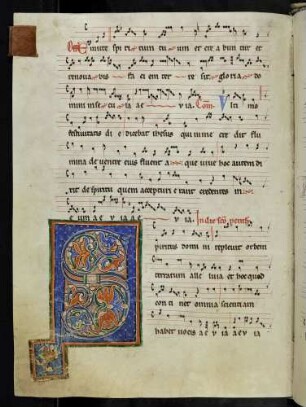 Emitte spiritum tuum et creabuntur et
renovabis faciem terre sit gloria do
mini in secula ae via Com Ultimo
festivitatis die dicebat ihesus qui in me credit flu
mina de ventre eius fluent aque vive hoc autem di
xit de spiritu quem accepturi erant credentes in
eum ae v ia ae v ia In die sco penth
piritus domini replevit orbem
terrarum alleluia et hoc quod
continet omnia scientiam
habet vocis ae v ia ae v ia